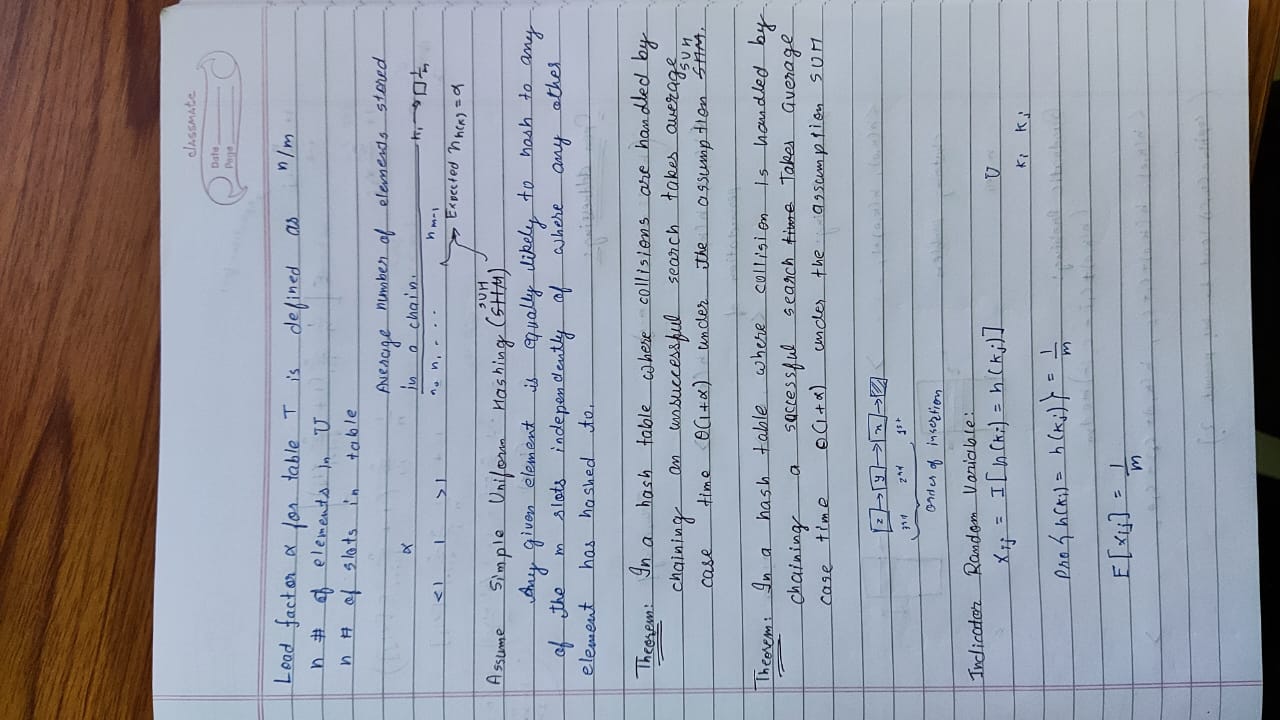 classmate
Date
Page
Load factor α for table T is defined as n/m
n # of elements in U
n # of slots in table
Average number of elements stored
in a chain.
α
n₀ n₁ . . . . n m-1
n₁ → □ 1/m
<1 1 >1
→ Expected n h(k) = α
Assume Simple Uniform Hashing (SHM) SUH
Any given element is equally likely to hash to any
of the m slots independently of where any other
element has hashed to.
Theorem: In a hash table where collisions are handled by
chaining an unsuccessful search takes average
case time Θ(1+α) under the assumption SHM. SUH
Theorem: In a hash table where collision is handled by
chaining a successful search time takes average
case time Θ(1+α) under the assumption SUM
[z] → [y] → [x] →
2nd 1st
order of insertion
Indicator Random Variable: U
X ij = I [h(ki) = h(kj)] ki kj
Pro { h(ki) = h(kj) } = 1/m
E [xij] = 1/m